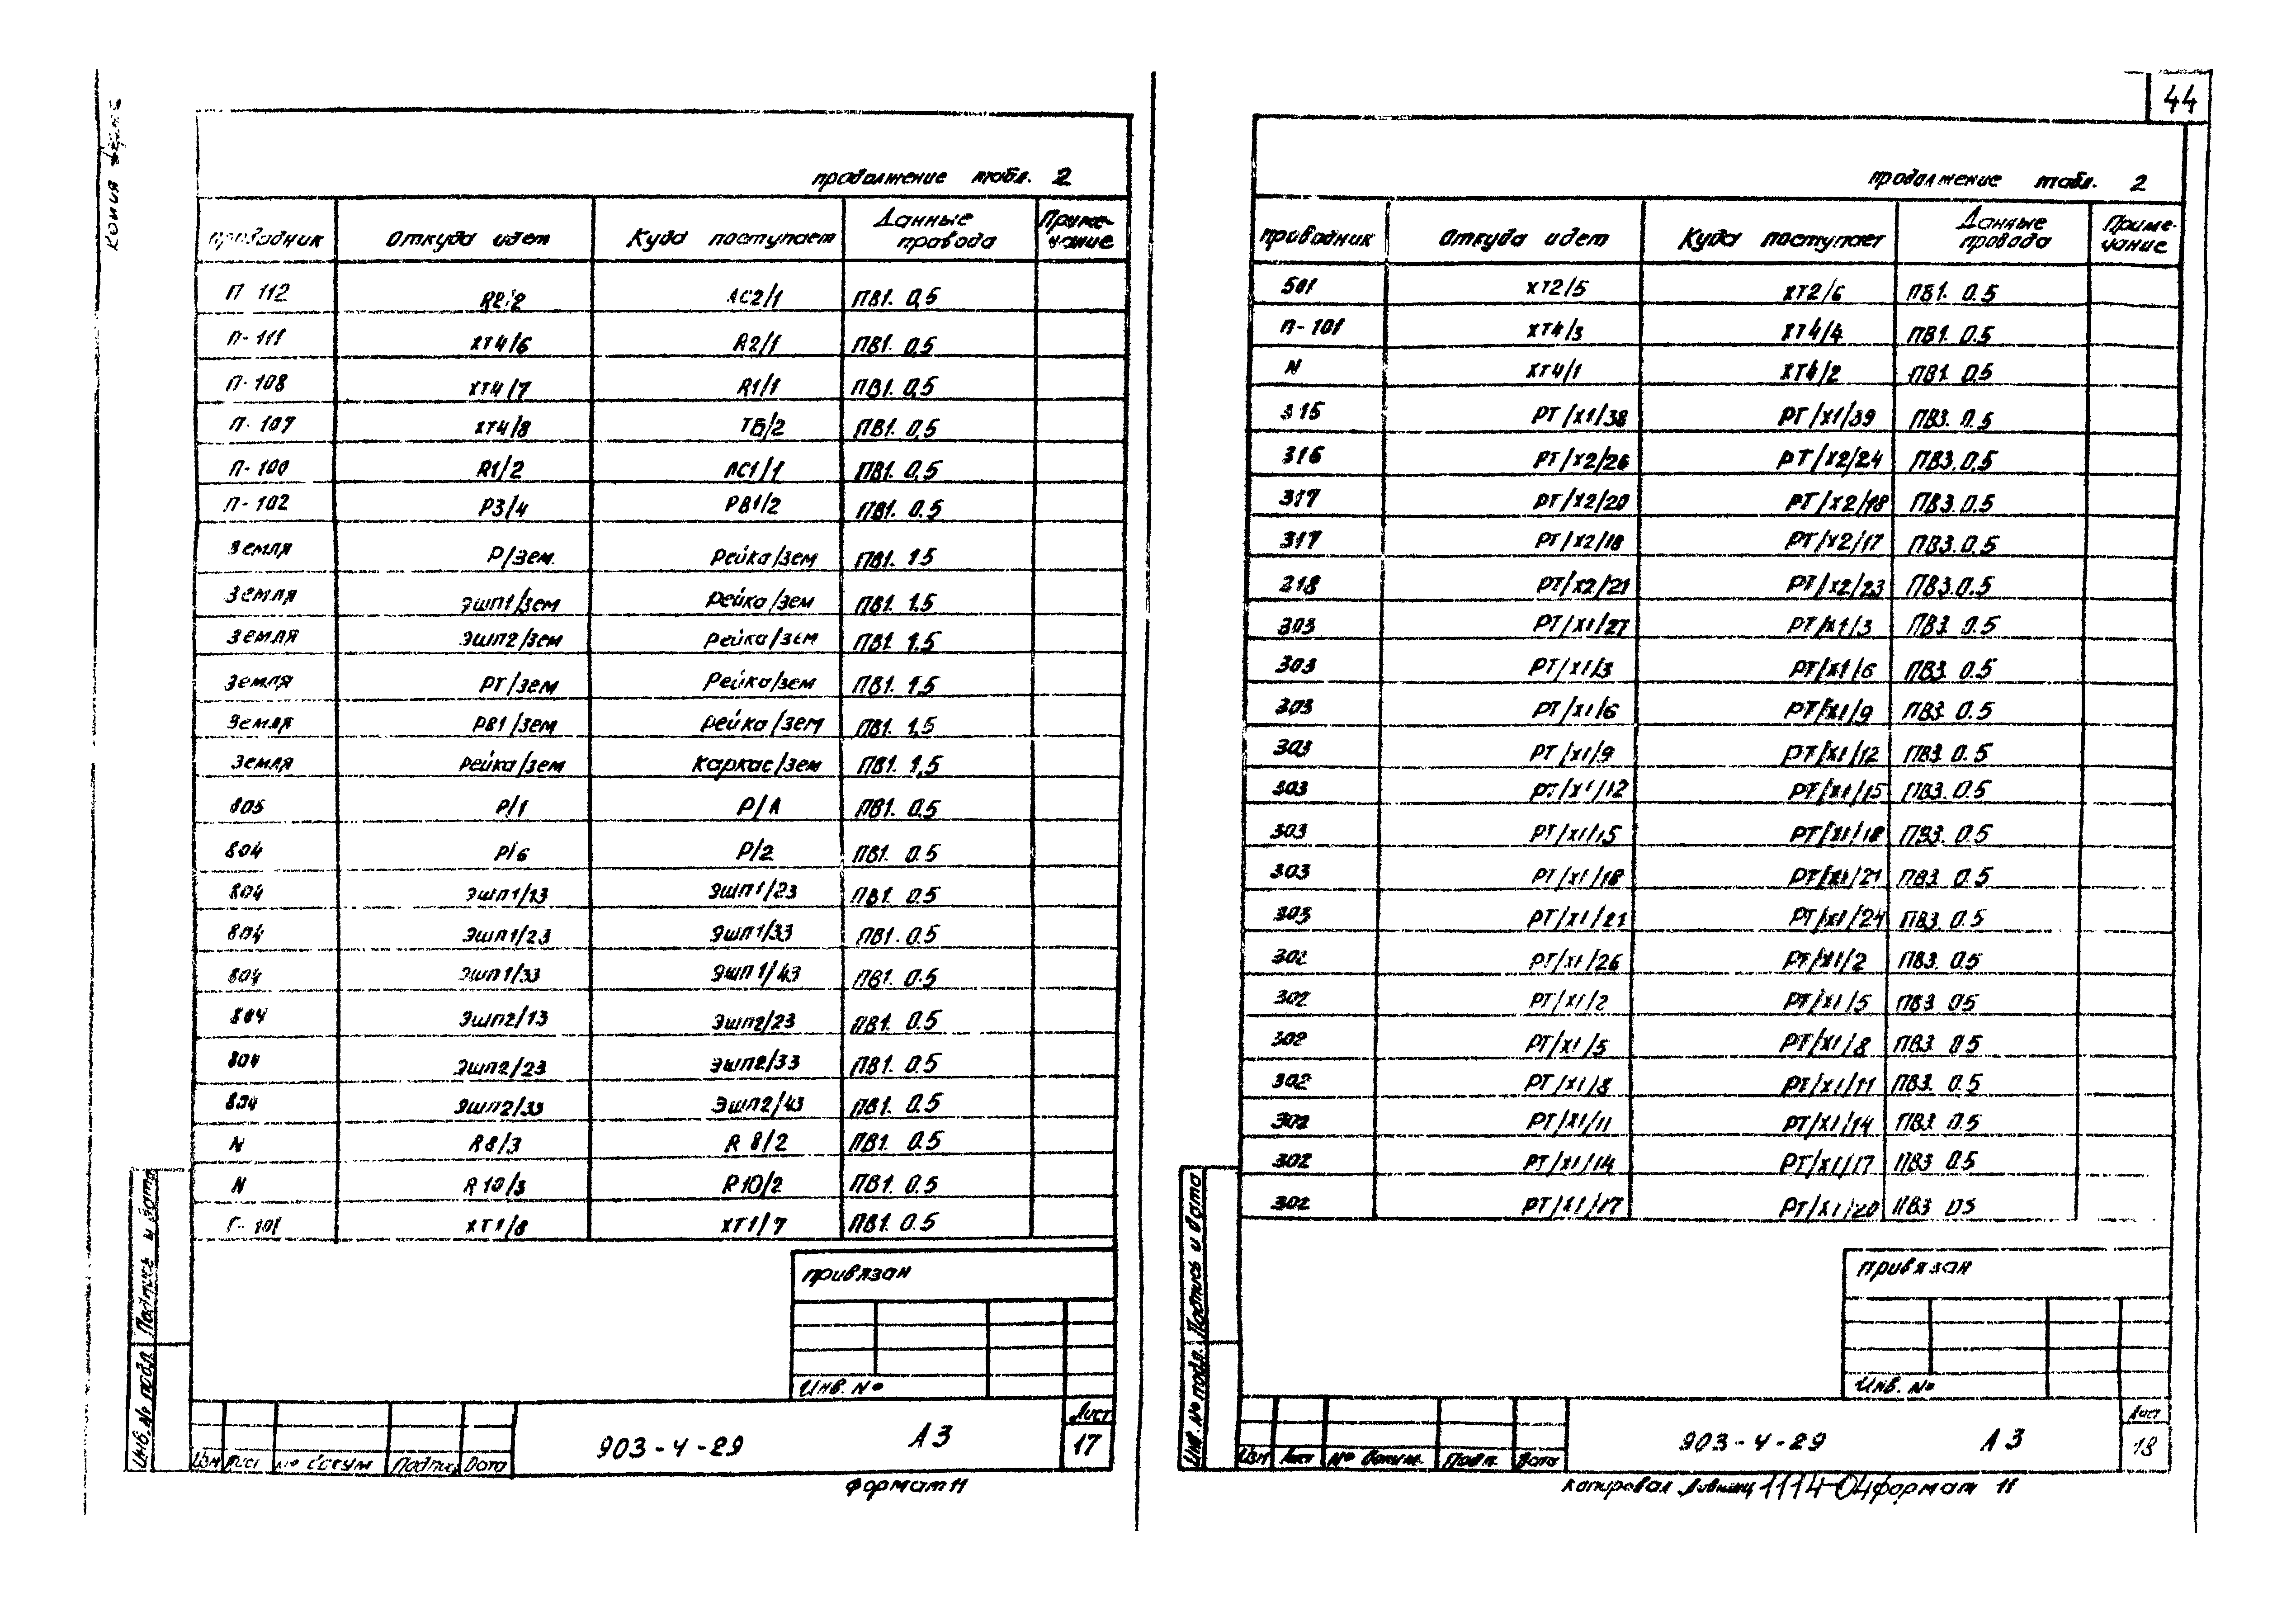 44
Копия верна
продолжение табл. 2
проводник Откуда идет Куда поступает Данные провода Примечание
П 112 R2/2 ЛС2/1 ПВ1. 0,5
П-111 ХТ4/6 R2/1 ПВ1. 0,5
П-108 ХТ4/7 R1/1 ПВ1. 0,5
П-107 ХТ4/8 ТБ/2 ПВ1. 0,5
П-100 R1/2 ЛС1/1 ПВ1. 0,5
П-102 Р3/4 РВ1/2 ПВ1. 0.5
Земля Р/зем. Рейка/зем ПВ1. 1.5
Земля ЭШП1/зем Рейка/зем ПВ1. 1.5
Земля ЭШП2/зем Рейка/зем ПВ1. 1.5
Земля РТ/зем Рейка/зем ПВ1. 1,5
Земля РВ1/зем Рейка/зем ПВ1. 1,5
Земля Рейка/зем Каркас/зем ПВ1. 1,5
805 Р/1 Р/А ПВ1. 0.5
804 Р/6 Р/2 ПВ1. 0.5
804 ЭШП1/13 ЭШП1/23 ПВ1. 0.5
804 ЭШП1/23 ЭШП1/33 ПВ1. 0.5
804 ЭШП1/33 ЭШП1/43 ПВ1. 0.5
804 ЭШП2/13 ЭШП2/23 ПВ1. 0.5
804 ЭШП2/23 ЭШП2/33 ПВ1. 0.5
804 ЭШП2/33 ЭШП2/43 ПВ1. 0.5
N R8/3 R 8/2 ПВ1. 0.5
N R10/3 R10/2 ПВ1. 0.5
Г-101 ХТ1/8 ХТ1/7 ПВ1. 0.5
привязан
Инв. №
Изм Лист № докум Подпись Дата
903-4-29 А3
Лист
17
Инв. № подл. Подпись и дата
формат 11
продолжение табл. 2
проводник Откуда идет Куда поступает Данные провода Примечание
501 ХТ2/5 ХТ2/6 ПВ1. 0.5
П-101 ХТ4/3 ХТ4/4 ПВ1. 0.5
N ХТ4/1 ХТ4/2 ПВ1. 0.5
315 РТ/Х1/38 РТ/Х1/39 ПВ3. 0.5
316 РТ/Х2/26 РТ/Х2/24 ПВ3. 0,5
317 РТ/Х2/20 РТ/Х2/18 ПВ3. 0.5
317 РТ/Х2/18 РТ/Х2/17 ПВ3. 0.5
218 РТ/Х2/21 РТ/Х2/23 ПВ3. 0.5
303 РТ/Х1/27 РТ/Х1/3 ПВ3. 0.5
303 РТ/Х1/3 РТ/Х1/6 ПВ3. 0.5
303 РТ/Х1/6 РТ/Х1/9 ПВ3. 0.5
303 РТ/Х1/9 РТ/Х1/12 ПВ3. 0.5
303 РТ/Х1/12 РТ/Х1/15 ПВ3. 0.5
303 РТ/Х1/15 РТ/Х1/18 ПВ3. 0.5
303 РТ/Х1/18 РТ/Х1/21 ПВ3. 0.5
303 РТ/Х1/21 РТ/Х1/24 ПВ3. 0.5
302 РТ/Х1/26 РТ/Х1/2 ПВ3. 0.5
302 РТ/Х1/2 РТ/Х1/5 ПВ3 0.5
302 РТ/Х1/5 РТ/Х1/8 ПВ3 0.5
302 РТ/Х1/8 РТ/Х1/11 ПВ3. 0.5
302 РТ/Х1/11 РТ/Х1/14 ПВ3 0.5
302 РТ/Х1/14 РТ/Х1/17 ПВ3 0.5
302 РТ/Х1/17 РТ/Х1/20 ПВ3 0.5
привязан
Инв. №
Изм Лист № докум. Подп. Дата
903-4-29 А3
Лист
18
Инв. № подл. Подпись и дата
Копировал 1114-04 формат 11